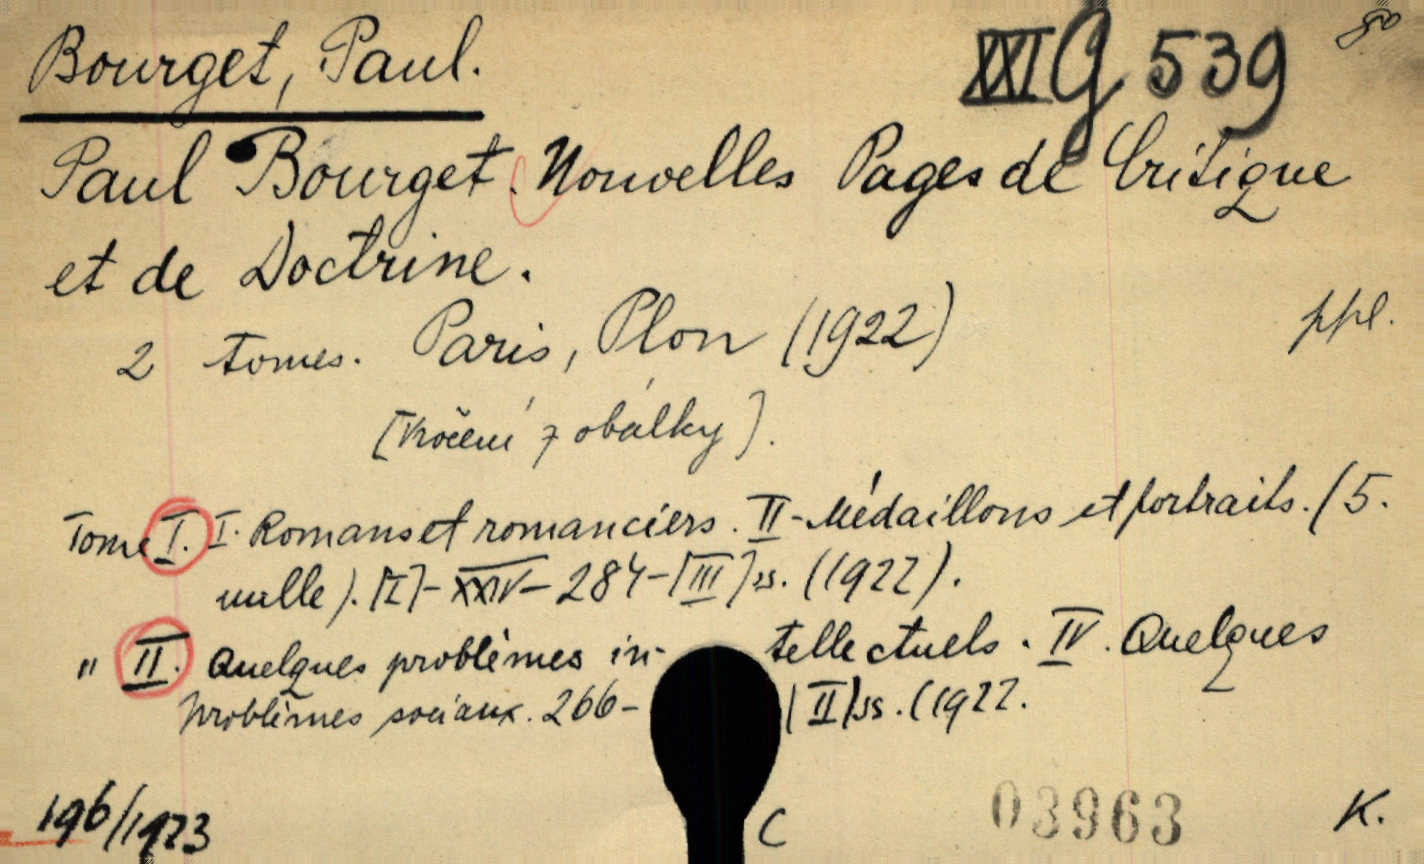 Bourget, Paul.
XXI G 539
8°
Paul Bourget. Nouvelles Pages de Critique
et de Doctrine.
2 tomes. Paris, Plon (1922)
ppl.
[Ročení z obálky].
Tome I. I. Romans et romanciers. II - Médaillons et portraits. (5.
mille). [I]-XXIV-284-[III] ss. (1922).
" II. Quelques problèmes in- tellectuels. IV. Quelques
problèmes sociaux. 266- [II] ss. (1922.
196/1923
C
03963
K.